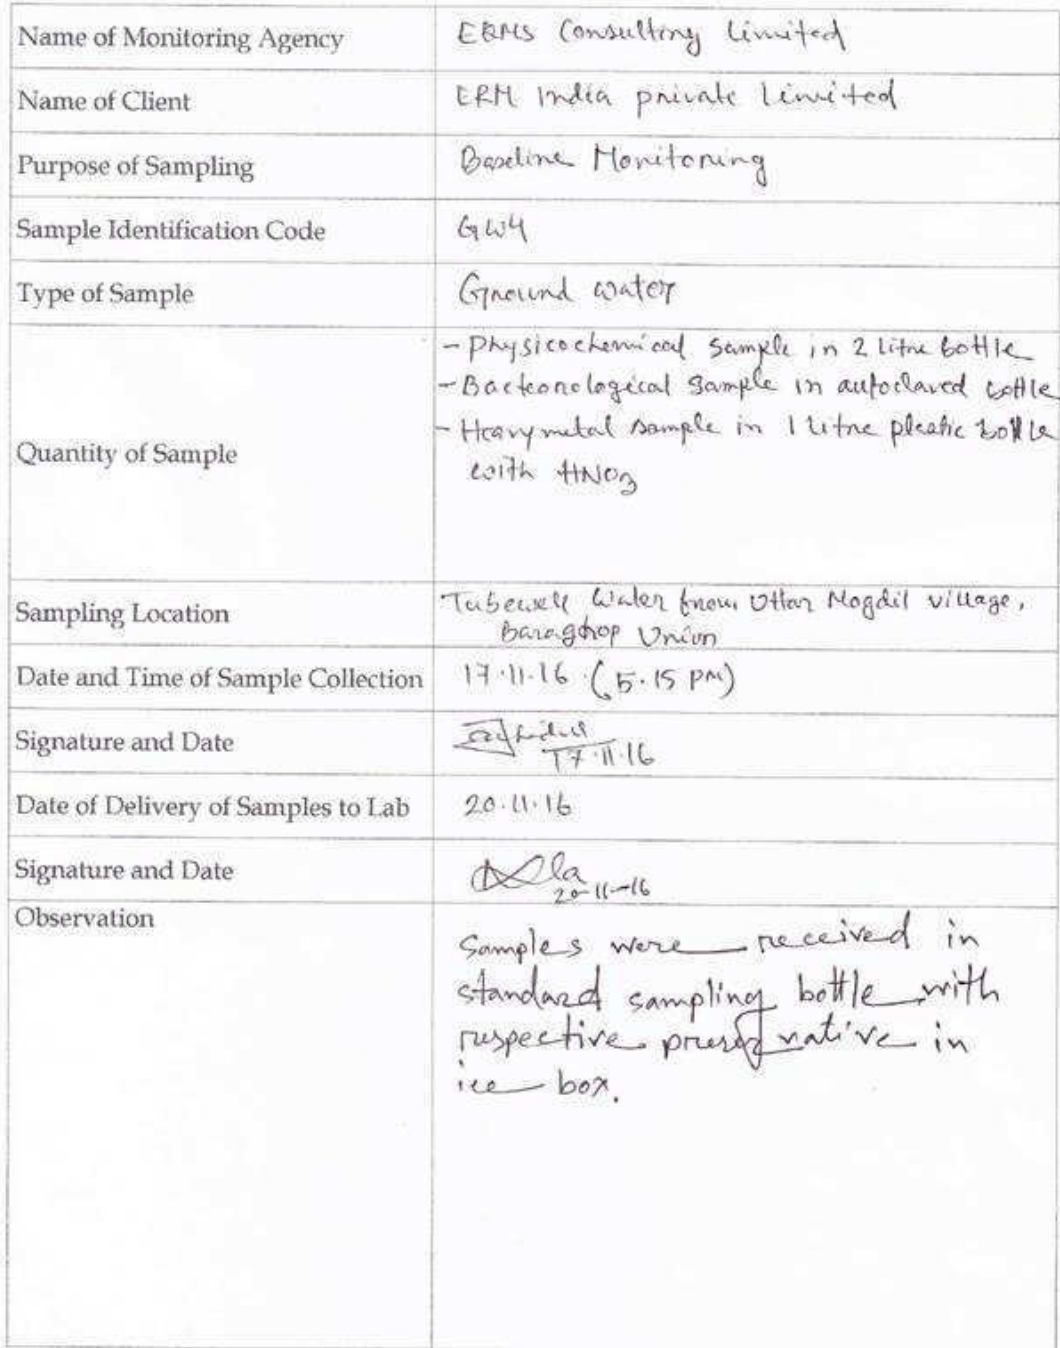 Name of Monitoring Agency EQMS Consulting Limited
Name of Client ERM India private Limited
Purpose of Sampling Baseline Monitoring
Sample Identification Code GW4
Type of Sample Ground water
Quantity of Sample
- Physicochemical Sample in 2 Litre bottle
- Bacteorological Sample in autoclaved bottle
- Heavymetal sample in 1 Litre plastic bottle
with HNO3
Sampling Location
Tubewell Water from Uttar Mogdil village,
Baraghop Union
Date and Time of Sample Collection 17.11.16 (5.15 PM)
Signature and Date
17.11.16
Date of Delivery of Samples to Lab 20.11.16
Signature and Date
20-11-16
Observation
Samples were received in
standard sampling bottle with
respective preservative in
ice box.